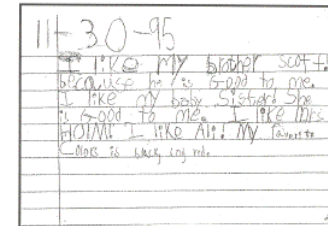 11-30-95
I like my brother scott.
because he is Good to me.
I like my baby Sister! She
is Good to me. I like mrs
HOIM! I like Ali! My favorite
Colors is black and red.